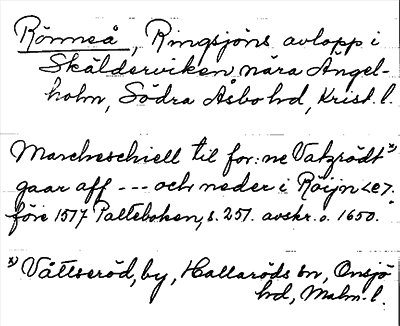 Rönneå, Ringsjöns avlopp i
Skälderviken nära Ängel-
holm, Södra Åsbo hd, Krist. l.
Marcheschiell til for:ne Vatzrödt x)
gaar aff --- och neder i Röijn <e>.
före 1577 Palteboken, s. 251. avskr. o. 1650.
x) Våttseröd, by, Hallaröds sn, Onsjö
hd, Malm. l.